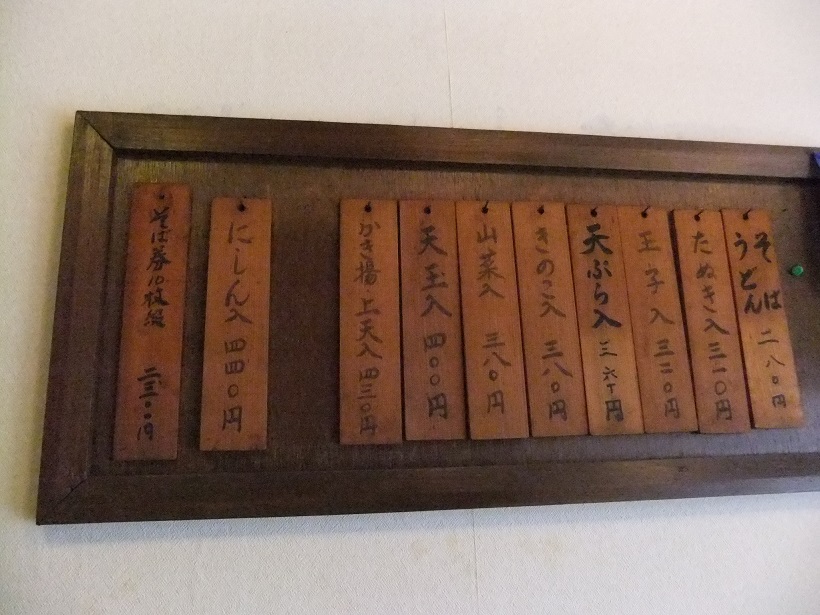 そば
うどん 二八〇円
たぬき入 三一〇円
玉子入 三三〇円
天ぷら入 三六〇円
きのこ入 三八〇円
山菜入 三八〇円
天玉入 四〇〇円
かき揚 上天入 四三〇円
にしん入 四四〇円
そば券10枚綴